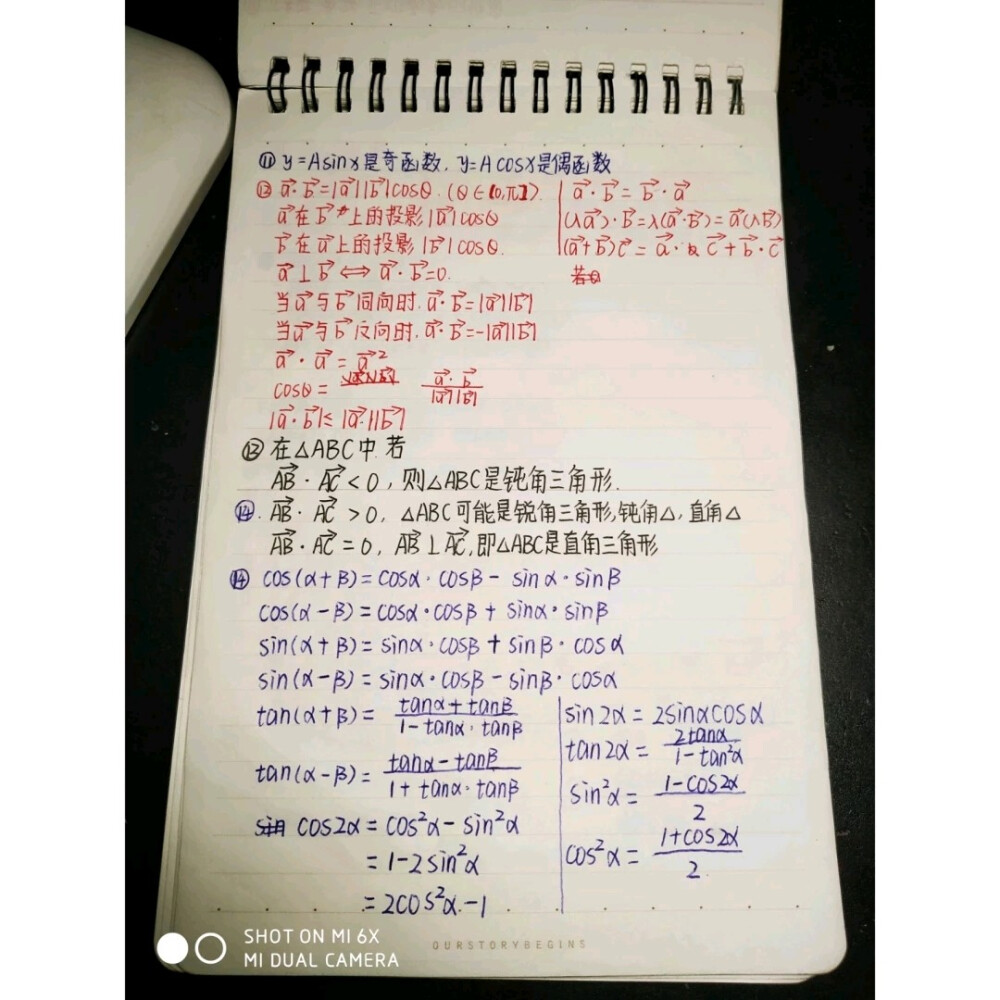 ⑪ y=Asinx是奇函数. y=Acosx是偶函数
⑫ a⃗·b⃗=|a⃗||b⃗|cosθ. (θ∈[0,π]).
a⃗在b⃗上的投影|a⃗|cosθ
b⃗在a⃗上的投影|b⃗|cosθ.
a⃗⊥b⃗⇔a⃗·b⃗=0.
当a⃗与b⃗同向时.a⃗·b⃗=|a⃗||b⃗|
当a⃗与b⃗反向时.a⃗·b⃗=-|a⃗||b⃗|
a⃗·a⃗=a⃗²
cosθ= a⃗·b⃗/|a⃗||b⃗|
|a⃗·b⃗|≤|a⃗||b⃗|
a⃗·b⃗=b⃗·a⃗
(λa⃗)·b⃗=λ(a⃗·b⃗)=a⃗(λb⃗)
(a⃗+b⃗)c⃗=a⃗·c⃗+b⃗·c⃗
⑬ 在△ABC中.若
AB⃗·AC⃗<0,则△ABC是钝角三角形.
⑭. AB⃗·AC⃗>0,△ABC可能是锐角三角形,钝角△,直角△
AB⃗·AC⃗=0,AB⃗⊥AC⃗,即△ABC是直角三角形
⑭ cos(α+β)=cosα·cosβ-sinα·sinβ
cos(α-β)=cosα·cosβ+sinα·sinβ
sin(α+β)=sinα·cosβ+sinβ·cosα
sin(α-β)=sinα·cosβ-sinβ·cosα
tan(α+β)=(tanα+tanβ)/(1-tanα·tanβ)
tan(α-β)=(tanα-tanβ)/(1+tanα·tanβ)
cos2α=cos²α-sin²α
=1-2sin²α
=2cos²α-1
sin2α=2sinαcosα
tan2α=2tanα/(1-tan²α)
sin²α=(1-cos2α)/2
cos²α=(1+cos2α)/2
OURSTORYBEGINS
SHOT ON MI 6X
MI DUAL CAMERA